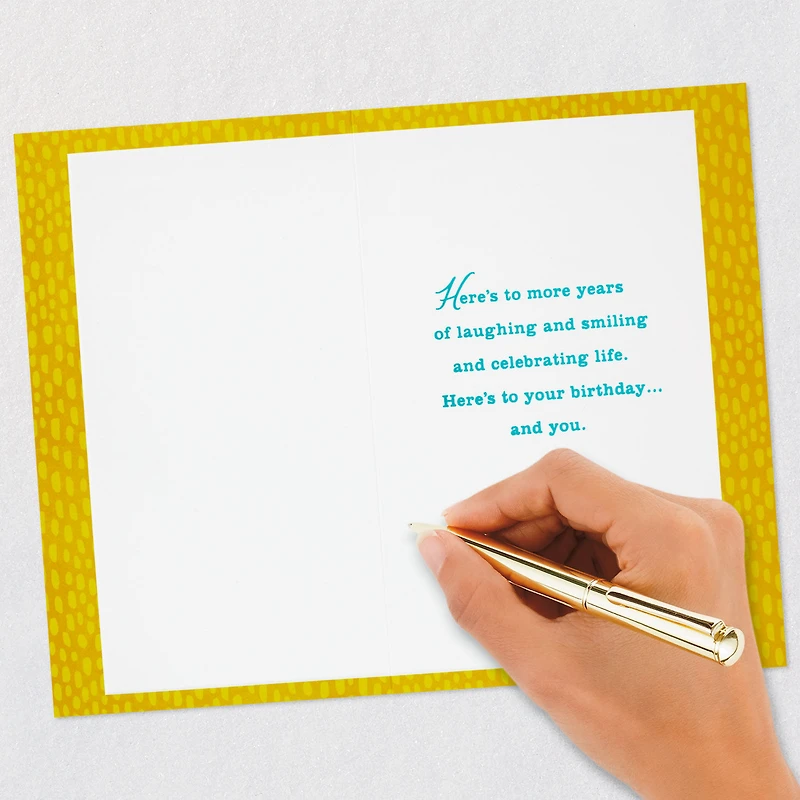 Here's to more years
of laughing and smiling
and celebrating life.
Here's to your birthday...
and you.